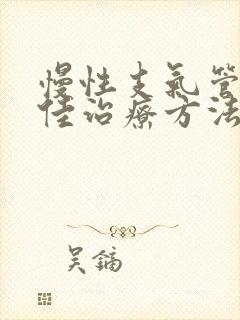 慢性支氣管
佳治療方法
吴鏑